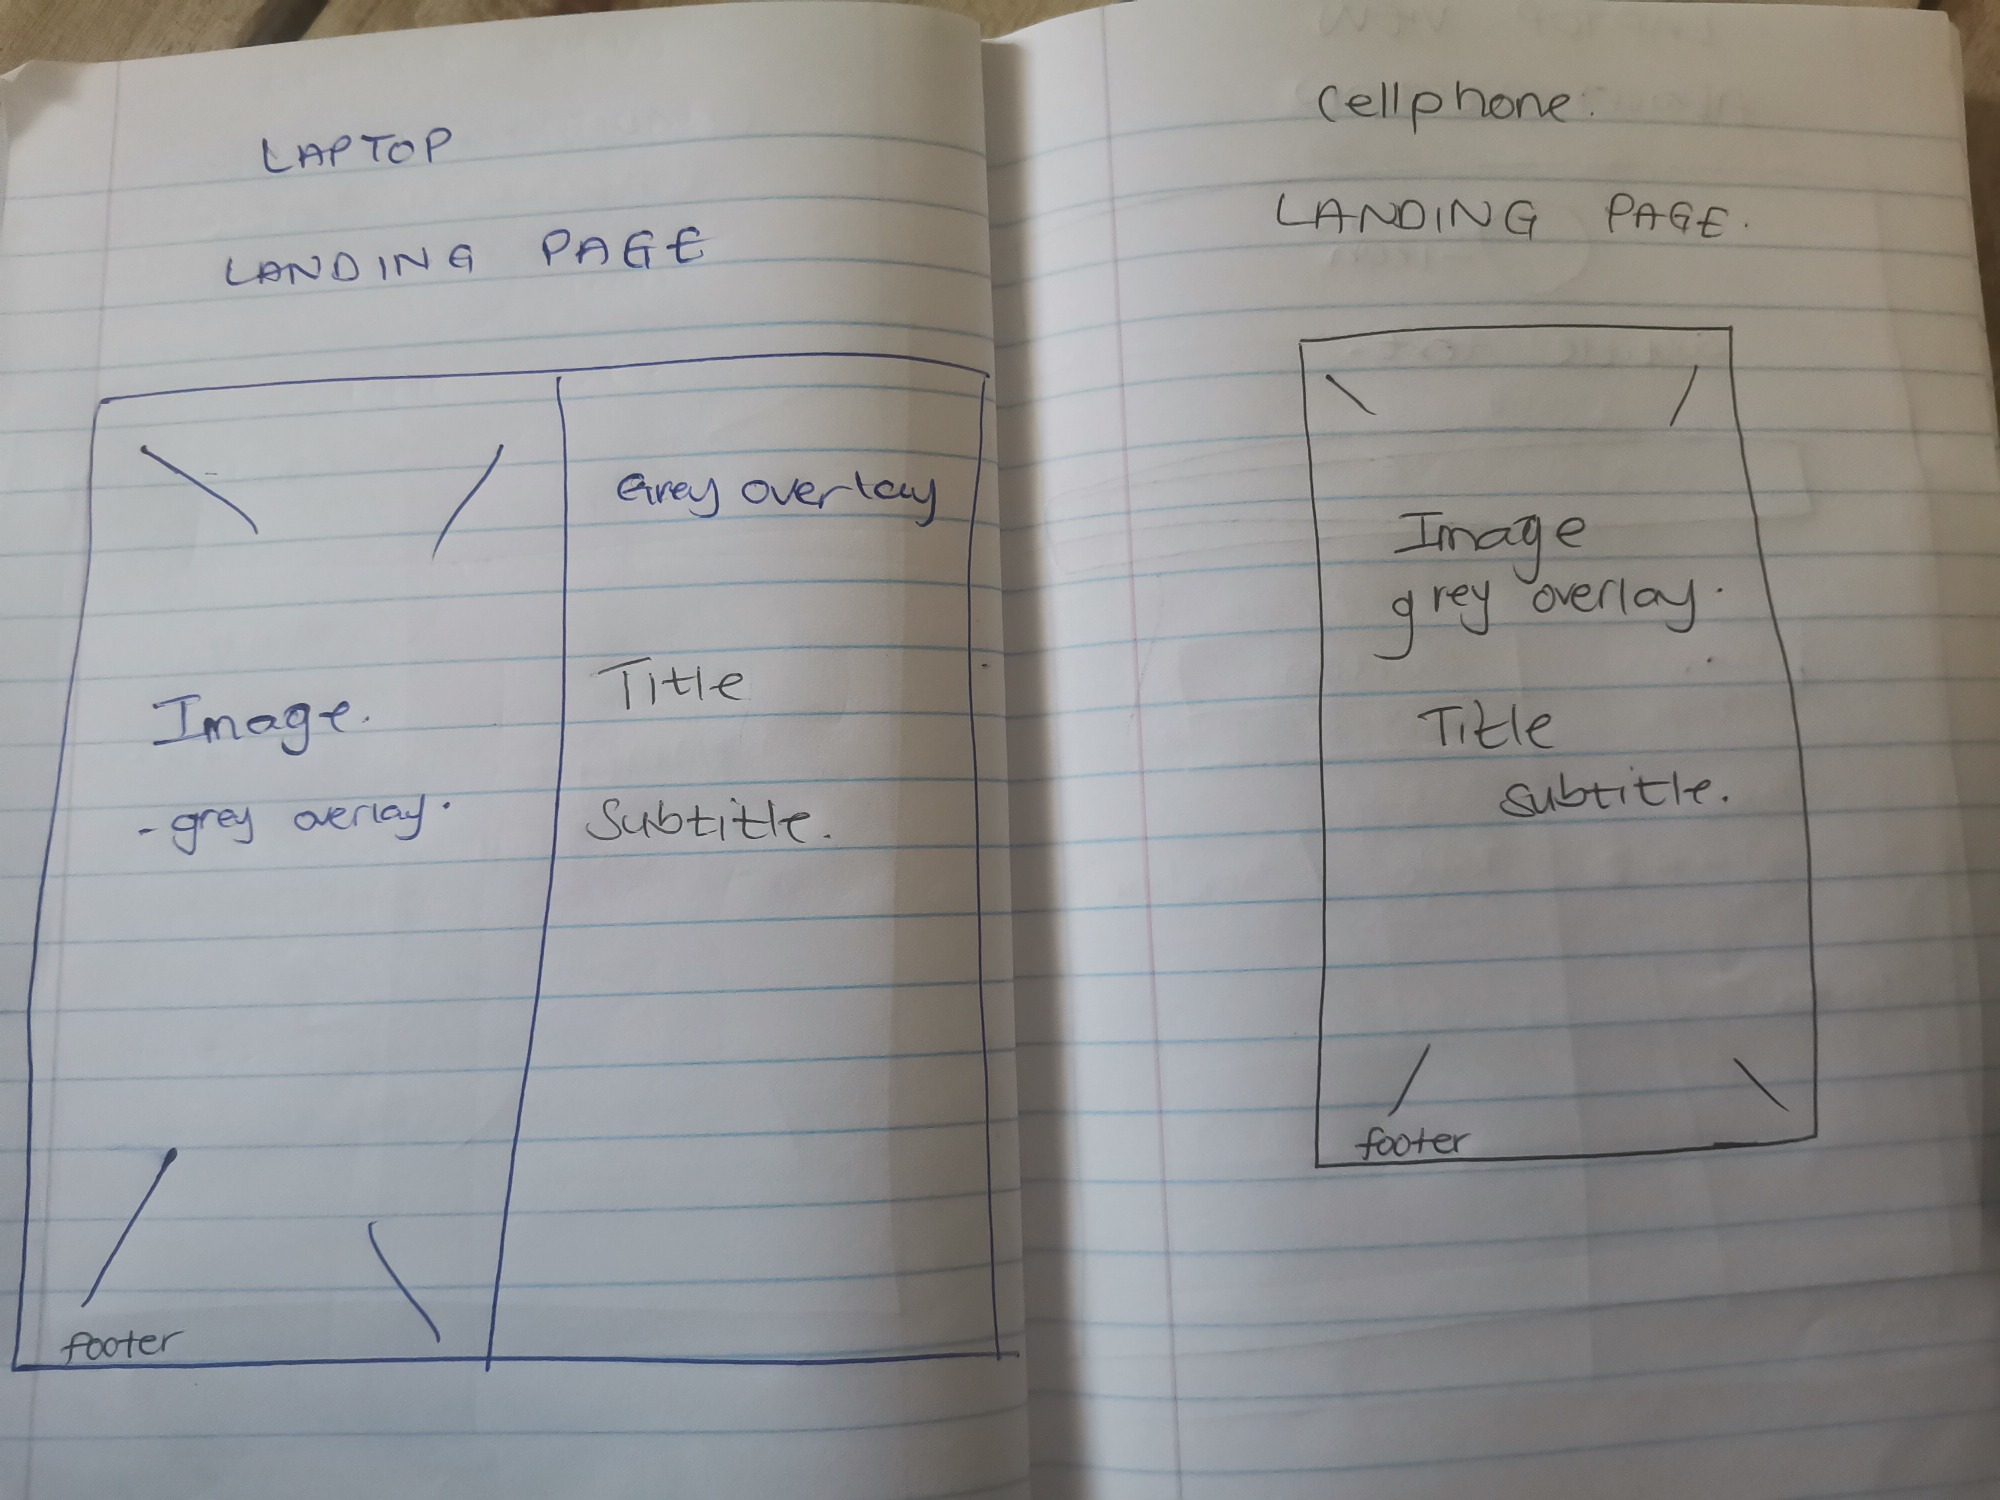 LAPTOP
LANDING PAGE
Grey overlay
Title
Image.
- grey overlay.
Subtitle.
footer
Cellphone.
LANDING PAGE.
Image
grey overlay.
Title
subtitle.
footer